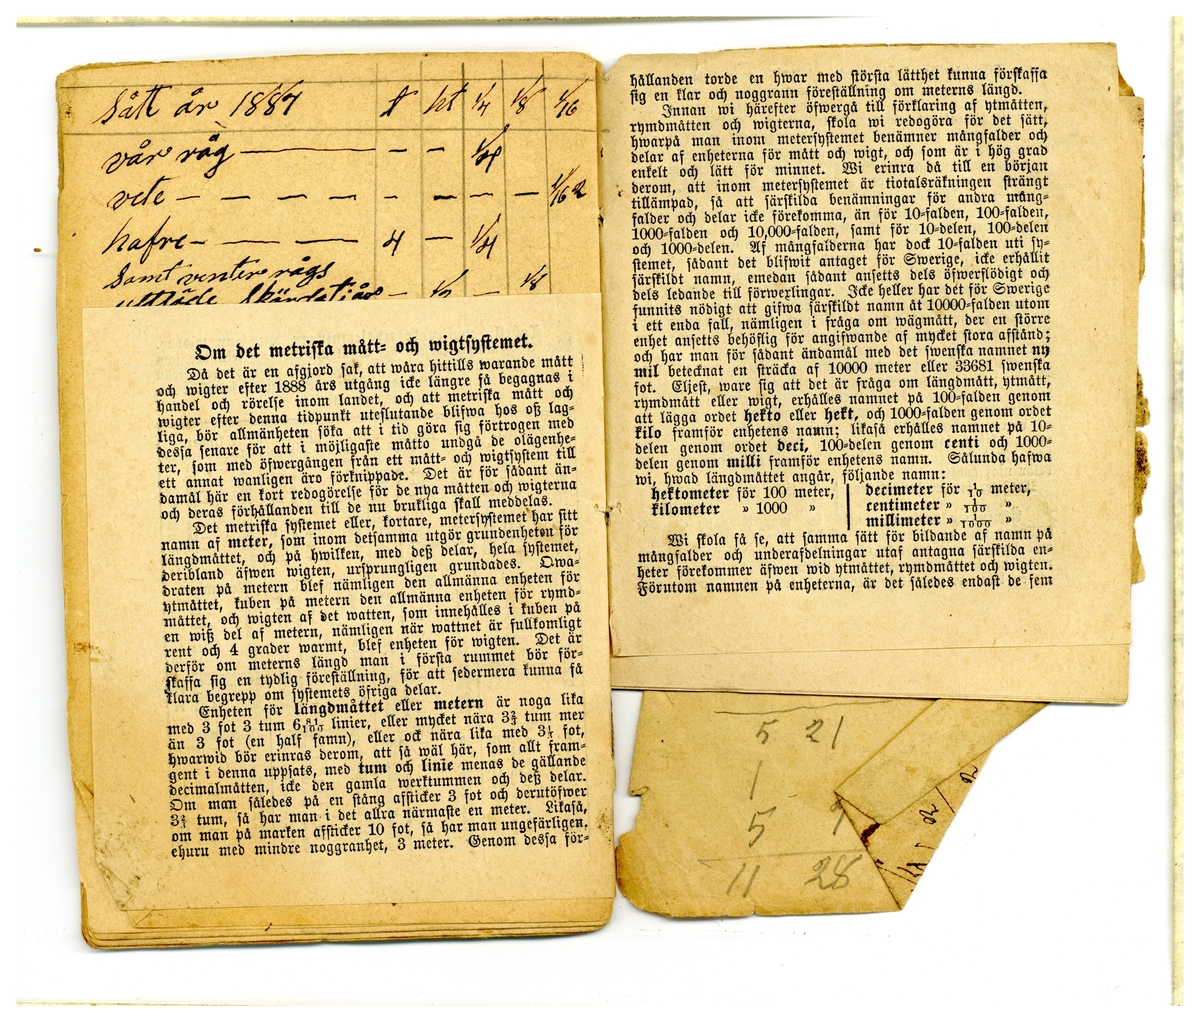 Sått år 1887 t kt 1/4 1/8 1/16
vår råg — — — 1/4
vete — — — — — — — — 1/16 2
hafre — — — 4 — 1/4
samt venter rågs
— 1/2 — 1/8
Om det metriska mått- och wigtsystemet.
Då det är en afgjord sak, att wåra hittills warande mått
och wigter efter 1888 års utgång icke längre få begagnas i
handel och rörelse inom landet, och att metriska mått och
wigter efter denna tidpunkt uteslutande blifwa hos oß lag-
liga, bör allmänheten söka att i tid göra sig förtrogen med
dessa senare för att i möjligaste måtto undgå de olägenhe-
ter, som med öfwergången från ett mått- och wigtsystem till
ett annat wanligen äro förknippade. Det är för sådant än-
damål här en kort redogörelse för de nya måtten och wigterna
och deras förhållanden till de nu brukliga skall meddelas.
Det metriska systemet eller, kortare, metersystemet har sitt
namn af meter, som inom detsamma utgör grundenheten för
längdmåttet, och på hwilken, med deß delar, hela systemet,
deribland äfwen wigten, ursprungligen grundades. Qwa-
draten på metern blef nämligen den allmänna enheten för
ytmåttet, kuben på metern den allmänna enheten för rymd-
måttet, och wigten af det watten, som innehålles i kuben på
en wiß del af metern, nämligen när wattnet är fullkomligt
rent och 4 grader warmt, blef enheten för wigten. Det är
derför om meterns längd man i första rummet bör för-
skaffa sig en tydlig föreställning, för att sedermera kunna få
klara begrepp om systemets öfriga delar.
Enheten för längdmåttet eller metern är noga lika
med 3 fot 3 tum 6 81/100 linier, eller mycket nära 3 2/3 tum mer
än 3 fot (en half famn), eller ock nära lika med 3 1/3 fot,
hwarwid bör erinras derom, att så wäl här, som allt fram-
gent i denna uppsats, med tum och linie menas de gällande
decimalmåtten, icke den gamla werktummen och deß delar.
Om man således på en stång afsticker 3 fot och derutöfwer
3 2/3 tum, så har man i det allra närmaste en meter. Likaså,
om man på marken afsticker 10 fot, så har man ungefärligen,
ehuru med mindre noggranhet, 3 meter. Genom dessa för-
hållanden torde en hwar med största lätthet kunna förskaffa
sig en klar och noggrann föreställning om meterns längd.
Innan wi härefter öfwergå till förklaring af ytmåtten,
rymdmåtten och wigterna, skola wi redogöra för det sätt,
hwarpå man inom metersystemet benämner mångfalder och
delar af enheterna för mått och wigt, och som är i hög grad
enkelt och lätt för minnet. Wi erinra då till en början
derom, att inom metersystemet är tiotalsräkningen strängt
tillämpad, så att särskilda benämningar för andra mång-
falder och delar icke förekomma, än för 10-falden, 100-falden,
1000-falden och 10,000-falden, samt för 10-delen, 100-delen
och 1000-delen. Af mångfalderna har dock 10-falden uti sy-
stemet, sådant det blifwit antaget för Swerige, icke erhållit
särskildt namn, emedan sådant ansetts dels öfwerflödigt och
dels ledande till förwexlingar. Icke heller har det för Swerige
funnits nödigt att gifwa särskildt namn åt 10000-falden utom
i ett enda fall, nämligen i fråga om wägmått, der en större
enhet ansetts behöflig för angifwande af mycket stora afstånd;
och har man för sådant ändamål med det swenska namnet ny
mil betecknat en sträcka af 10000 meter eller 33681 swenska
fot. Eljest, ware sig att det är fråga om längdmått, ytmått,
rymdmått eller wigt, erhålles namnet på 100-falden genom
att lägga ordet hekto eller hekt, och 1000-falden genom ordet
kilo framför enhetens namn; likaså erhålles namnet på 10-
delen genom ordet deci, 100-delen genom centi och 1000-
delen genom milli framför enhetens namn. Sålunda hafwa
wi, hwad längdmåttet angår, följande namn:
hektometer för 100 meter, decimeter för 1/10 meter,
kilometer » 1000 » centimeter » 1/100 »
millimeter » 1/1000 »
Wi skola få se, att samma sätt för bildande af namn på
mångfalder och underafdelningar utaf antagna särskilda en-
heter förekommer äfwen wid ytmåttet, rymdmåttet och wigten.
Förutom namnen på enheterna, är det således endast de sem
5 21
1
5 7
11 28